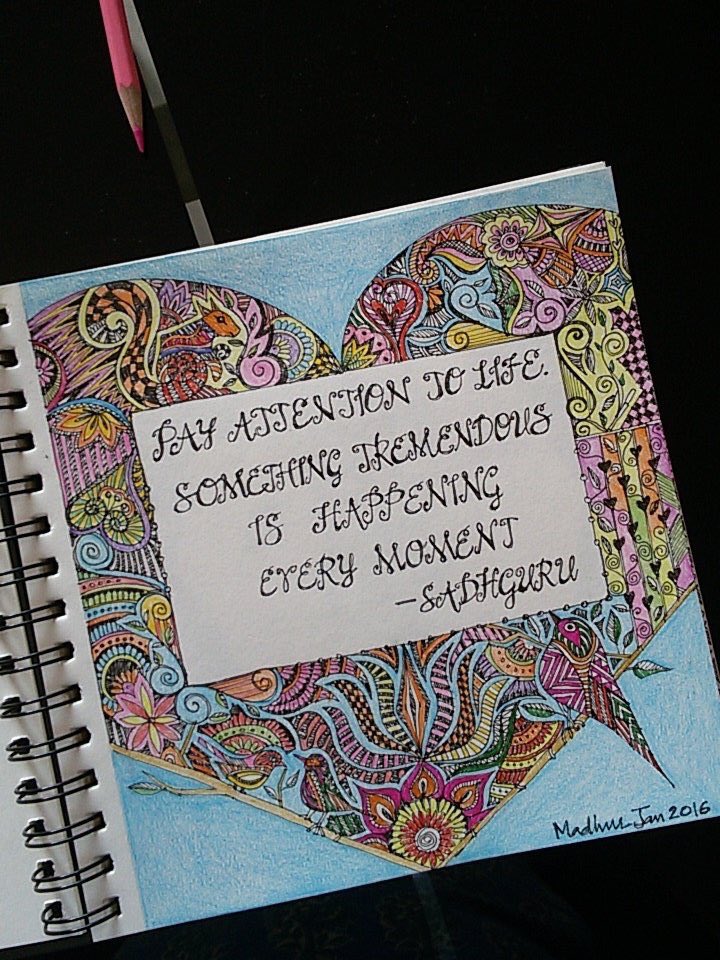 PAY ATTENTION TO LIFE.
SOMETHING TREMENDOUS
IS HAPPENING
EVERY MOMENT
—SADHGURU
Madhu Jan 2016